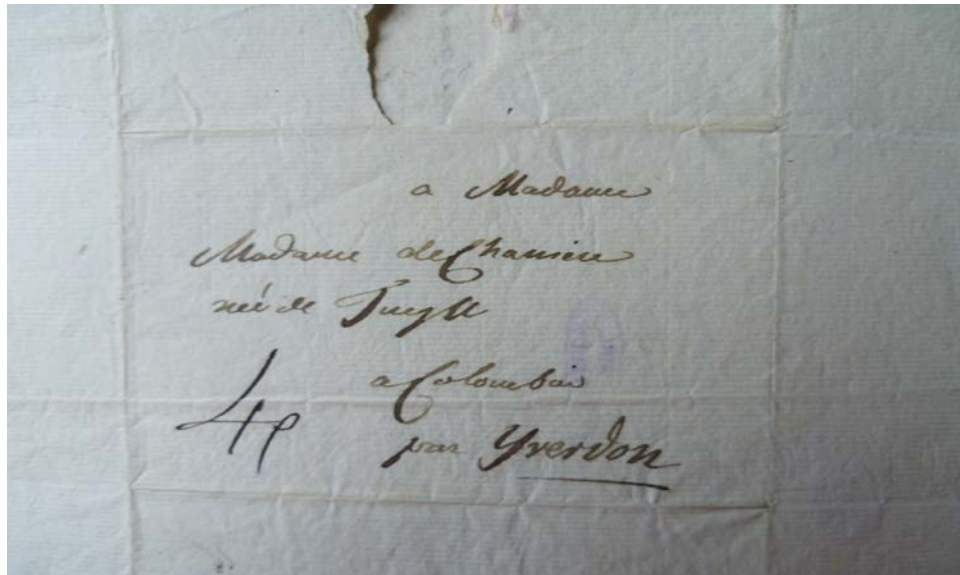 a Madame
Madame de Charriere
née de Tuyll
a Colombier
par Yverdon